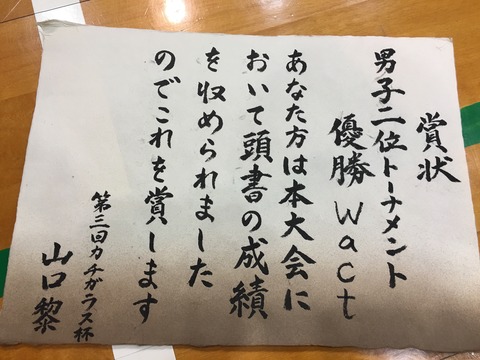 賞状
男子二位トーナメント
優勝 Wact
あなた方は本大会に
おいて頭書の成績
を収められました
のでこれを賞します
第三回カチガラス杯
山口黎